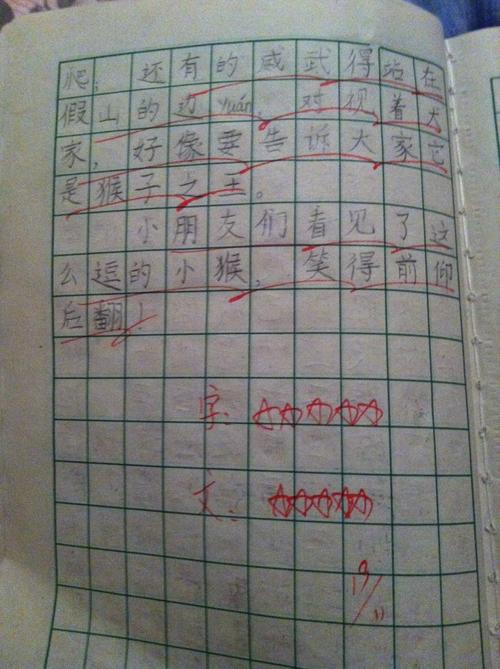 爬；还有的威武得站在
假山的边yuán，对视着大
家，好像要告诉大家它
是猴子之王。
小朋友们看见了这
么逗的小猴，笑得前仰
后翻！
字：☆☆☆☆☆
文：☆☆☆☆☆
19/11